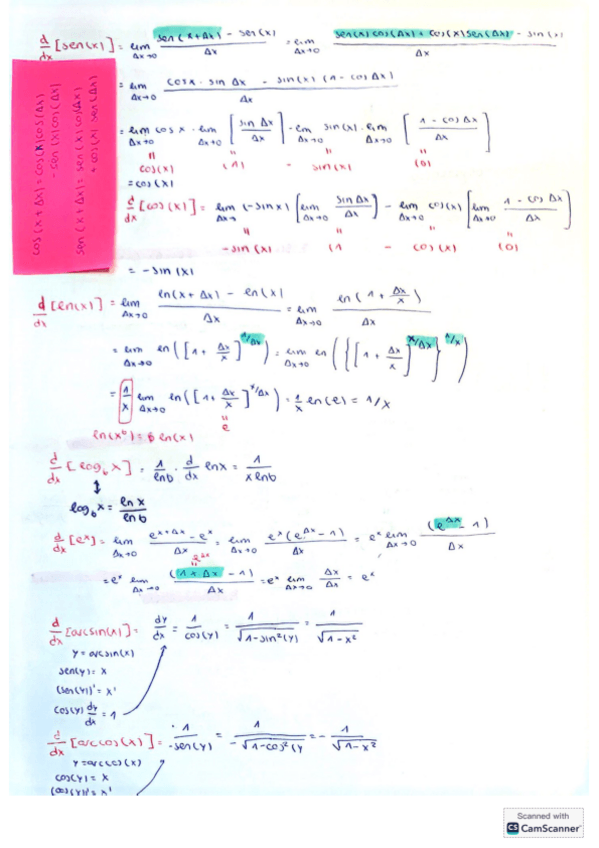 d/dx [sen(x)] = lim Δx→0 (sen(x+Δx) - sen(x))/Δx = lim Δx→0 (sen(x)cos(Δx) + cos(x)sen(Δx) - sin(x))/Δx
= lim Δx→0 (cosx · sin Δx - sin(x)(1 - cos Δx))/Δx
= lim Δx→0 cos x · lim Δx→0 [sin Δx/Δx] - lim Δx→0 sin(x) · lim Δx→0 [(1 - cos Δx)/Δx]
cos(x) (1) - sin(x) (0)
= cos(x)
cos(x+Δx) = cos(x)cos(Δx)
- sen(x)cos(Δx)
sen(x+Δx) = sen(x)cos(Δx)
+ cos(x) sen(Δx)
d/dx [cos(x)] = lim Δx→ (-sinx) [lim Δx→0 sinΔx/Δx] - lim Δx→0 cos(x) [lim Δx→0 (1 - cos Δx)/Δx]
-sin(x) (1 - cos(x) (0)
= -sin(x)
d/dx [ln(x)] = lim Δx→0 (ln(x+Δx) - ln(x))/Δx = lim Δx→0 ln(1 + Δx/x)/Δx
= lim Δx→0 ln([1 + Δx/x]^1/Δx) = lim Δx→0 ln({[1 + Δx/x]^x/Δx}^1/x)
= 1/x lim Δx→0 ln([1 + Δx/x]^x/Δx) = 1/x ln(e) = 1/x
e
ln(x^b) = b ln(x)
d/dx [log_b x] = 1/lnb · d/dx lnx = 1/(x lnb)
↕
log_b x = ln x/ln b
d/dx [e^x] = lim Δx→0 (e^x+Δx - e^x)/Δx = lim Δx→0 e^x(e^Δx - 1)/Δx = e^x lim Δx→0 (e^Δx - 1)/Δx
e^Δx
= e^x lim Δx→0 (1 + Δx - 1)/Δx = e^x lim Δx→0 Δx/Δx = e^x
d/dx [arcsin(x)] = dy/dx = 1/cos(y) = 1/√(1-sin²(y)) = 1/√(1-x²)
y = arcsin(x)
sen(y) = x
(sen(y))' = x'
cos(y) dy/dx = 1
d/dx [arccos(x)] = 1/-sen(y) = 1/-√(1-cos²(y) = - 1/√(1-x²)
y = arccos(x)
cos(y) = x
(cos(y))' = x'
Scanned with
CS CamScanner